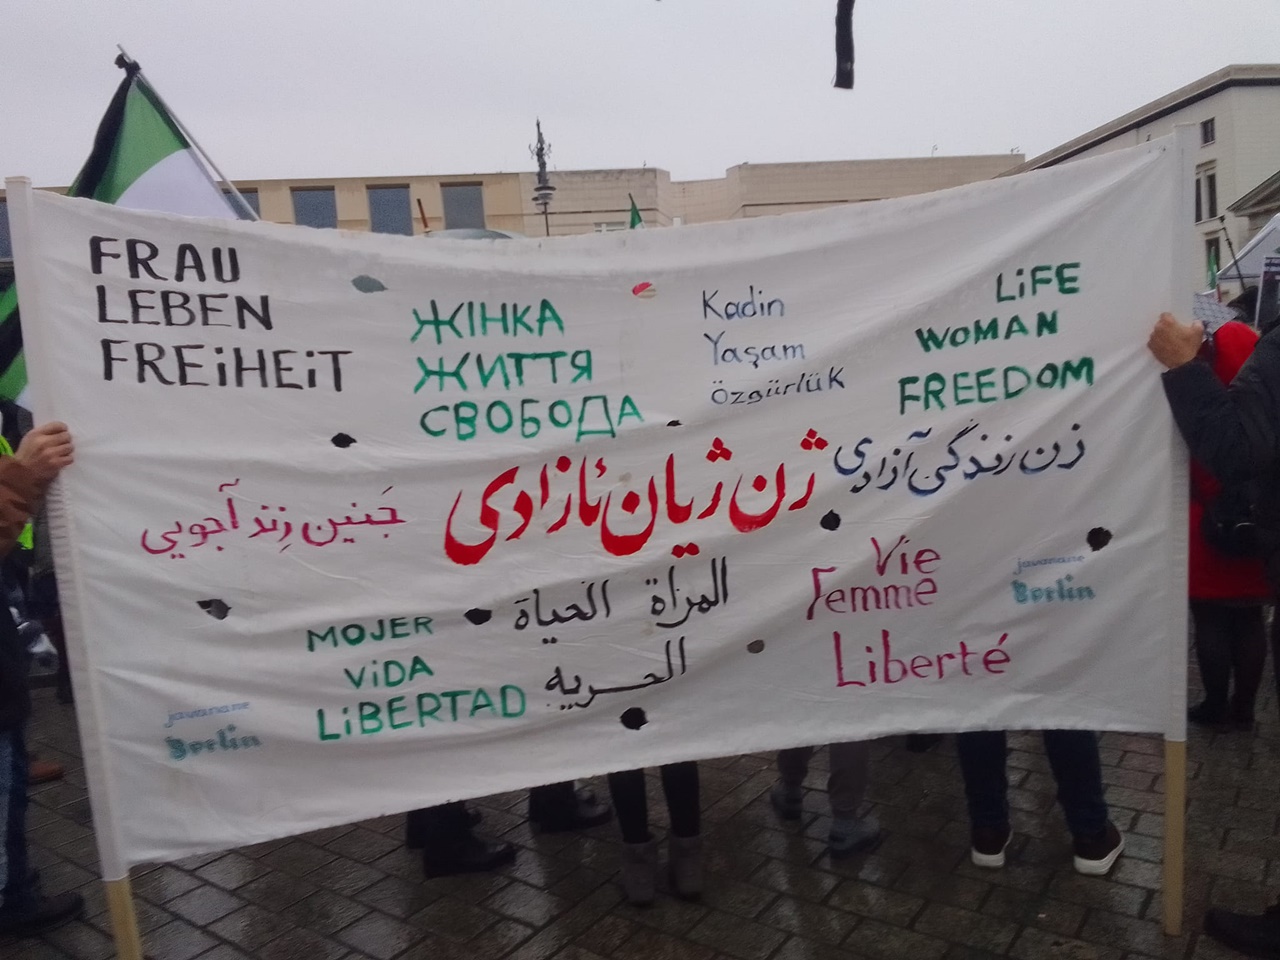 FRAU
LEBEN
FREiHEiT
ЖІНКА
ЖИТТЯ
СВОБОДА
Kadin
Yaşam
özgürlüK
LiFE
WOMAN
FREEDOM
زن زندگی آزادی
ژن ژیان ئازادی
جَنین زِند آجویی
المرأة الحياة
الحريه
Vie
Femme
Liberté
javanane
Berlin
MOJER
ViDA
LiBERTAD
javanane
Berlin